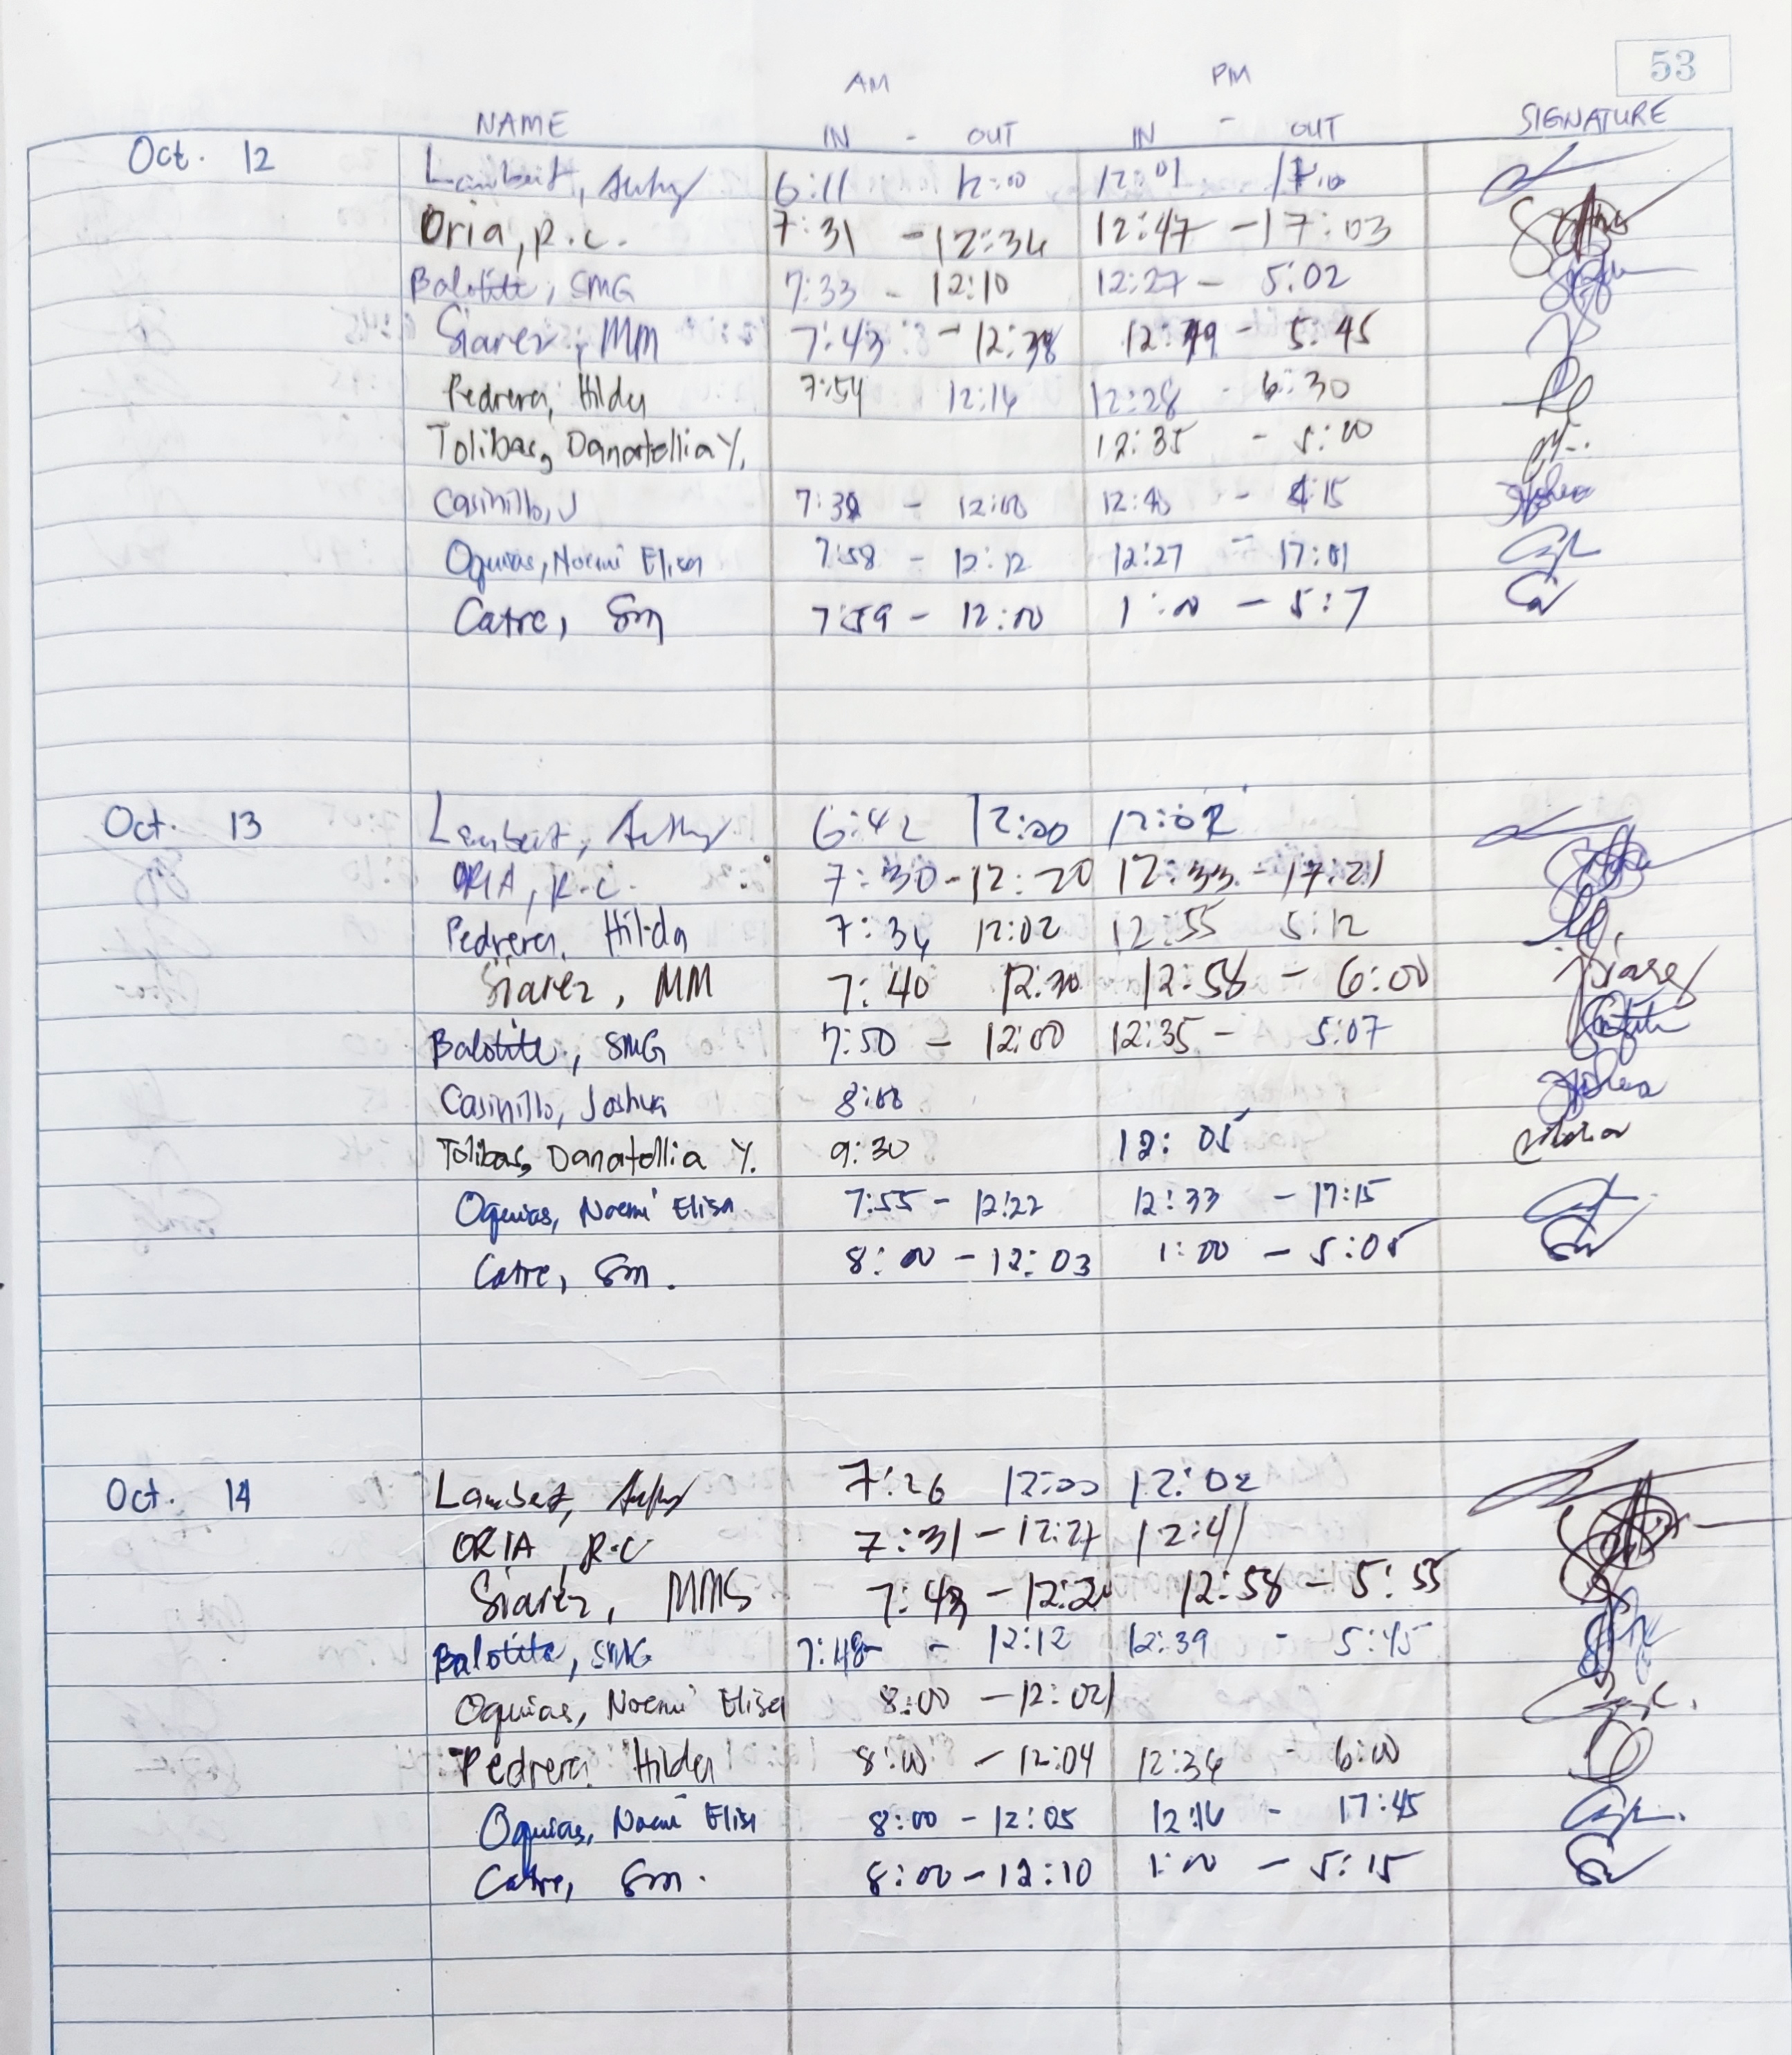 53
AM PM
NAME IN - OUT IN - OUT SIGNATURE
Oct. 12 Lambert, 6:11 12:00 12:01
Oria, R.C. 7:31 - 12:34 12:47 - 17:03
Balotite, SMG 7:33 - 12:10 12:27 - 5:02
Siarez, MM 7:43 - 12:38 12:49 - 5:45
Pedrera, Hilda 7:54 12:14 12:28 - 6:30
Tolibas, Danatellia Y. 12:35 - 5:00
Casinillo, J - 12:00 - 
Oquias, Noemi Elisa 7:58 - 12:12 12:27 - 17:01
Catre, Sm 7:59 - 12:00 1:00 - 5:7
Oct. 13 Lambert, 6:42 12:00 12:02
ORIA, R.C. 7:30 - 12:20 12:33 - 17:21
Pedrera, Hilda 7:34 12:02 12:55 5:12
Siarez, MM 7:40 12:30 12:58 - 6:00
Balotite, SMG 7:50 - 12:00 12:35 - 5:07
Casinillo, Joshua 8:00
Tolibas, Danatellia Y. 9:30 12:05
Oquias, Noemi Elisa 7:55 - 12:22 12:33 - 17:15
Catre, Sm. 8:00 - 12:03 1:00 - 5:05
Oct. 14 Lambert, 7:26 12:00 12:02
ORIA, R.C 7:31 - 12:27 12:41
Siarez, MMS 7:43 - 12:20 12:58 - 5:55
Balotite, SMG 7:48 - 12:12 12:39 - 5:45
Oquias, Noemi Elisa 8:00 - 
Pedrera Hilda 8:00 - 12:04 12:34 - 6:00
Oquias, Noemi Elisa 8:00 - 12:05 12:16 - 17:45
Catre, Sm. 8:00 - 12:10 1:00 - 5:15